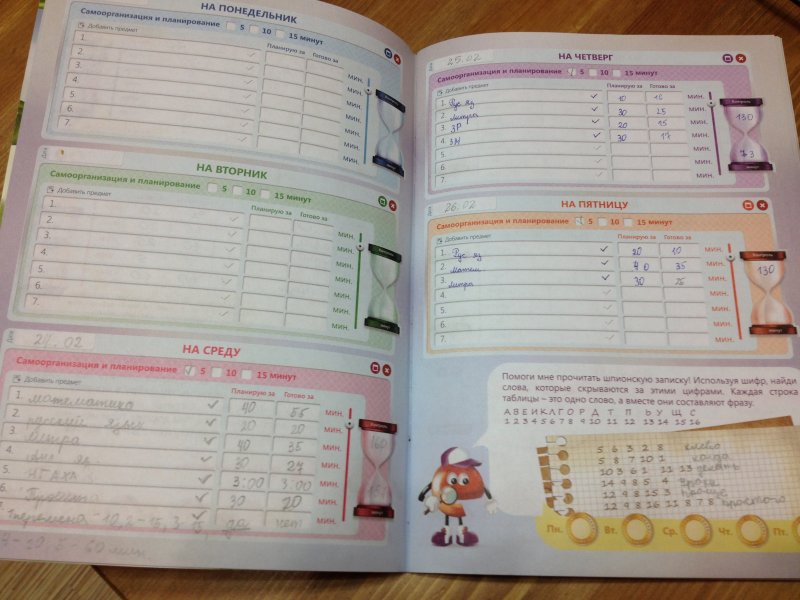 НА ПОНЕДЕЛЬНИК
Самоорганизация и планирование 5 10 15 минут
Добавить предмет Планирую за Готово за
1. мин.
2. мин.
3. мин.
4. мин.
5. мин.
6. мин.
7.
Дата
НА ВТОРНИК
Самоорганизация и планирование 5 10 15 минут
Добавить предмет Планирую за Готово за
1. мин.
2. мин.
3. мин.
4. мин.
5. мин.
6. мин.
7. мин.
Дата 24.02
НА СРЕДУ
Самоорганизация и планирование 5 10 15 минут
Добавить предмет Планирую за Готово за
1. математика 40 55 мин.
2. русский язык 20 20 мин.
3. 40 35 мин.
4. яз 30 27 мин.
5. 3:00 3:00 мин.
6. 30 20 мин.
да нет мин.
160
Дата 25.02
НА ЧЕТВЕРГ
Самоорганизация и планирование 5 10 15 минут
Добавить предмет Планирую за Готово за мин.
1. Рус яз 10 16 мин.
2. 30 25 мин.
3. ЗР 20 15 мин.
4. 30 17 мин.
5. мин.
6. мин.
7.
Контроль
130
минут
Дата 26.02
НА ПЯТНИЦУ
Самоорганизация и планирование 5 10 15 минут
Добавить предмет Планирую за Готово за
1. Рус яз 20 10 мин.
2. матем 40 35 мин.
3. литра 30 25 мин.
4. мин.
5. мин.
6. мин.
7. мин.
Контроль
130
минут
Помоги мне прочитать шпионскую записку! Используя шифр, найди
слова, которые скрываются за этими цифрами. Каждая строка
таблицы – это одно слово, а вместе они составляют фразу.
А В Е И К Л Г О Р Д Т П Ь У Щ С
1 2 3 4 5 6 7 8 9 10 11 12 13 14 15 16
5 6 3 2 8 клево
5 8 7 10 1 когда
10 3 6 1 11 13 делать
14 9 8 5 4 уроки
12 9 8 15 3 проще
12 9 8 16 11 8 7 8 простого
Пн. Вт. Ср. Чт. Пт.